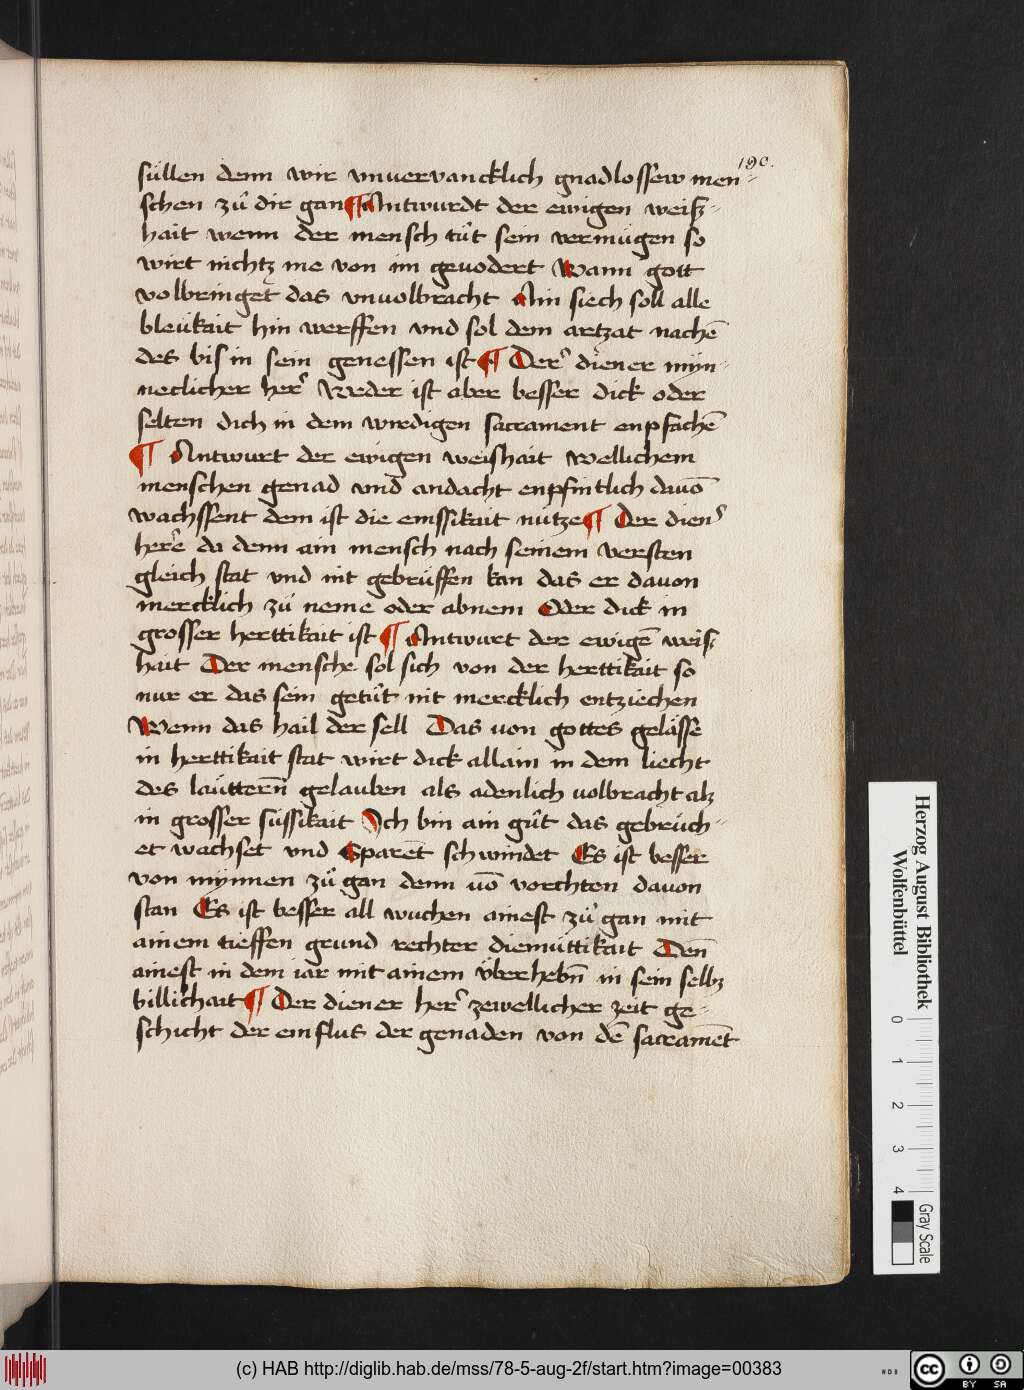 190.
süllen denn wir vnuervancklich gnadlossew men⸗
schen zů dir gan ¶ Antwurdt der ewigen weiſz⸗
hait wenn der mensch tůt sein vermügen so
wirt nichtz me von im geuodert Wann gott
volbringet das vnuolbracht Ain siech soll alle
bleükait hin werffen vnd sol dem artzat nachē
des bis in sein genessen ist ¶ Der diener myn
neclicher her Weder ist aber besser dick oder
selten dich in dem wirdigen sacrament enpfachē
¶ Antwurt der ewigen weishait Wellichem
menschen genad vnd andacht enpfintlich dauō
wachssent dem ist die emssikait nütze ¶ Der dien
here da denn ain mensch nach seinem versten
gleich stat vnd nit gebrüffen kan das er dauon
mercklich zů neme oder abnem Oder dick in
grosser herttikait ist ¶ Antwurt der ewigē weiſz
hait Der mensche sol sich von der herttikait so
nur er das sein getůt nit mercklich entziechen
Wenn das hail der sell Das von gottes gelässe
in herttikait stat wirt dick allain in dem liecht
des läutternn̄ gelauben als adenlich uolbracht alz
in grosser süssikait Ich bin ain gůt das gebrüch⸗
et wachset vnd Sparet schwindet Es ist besser
von mynnen zů gan denn uō vorchten davon
stan Es ist besser all wuchen ainest zů gan mit
ainem tieffen grund rechter diemüttikait Denn̄
ainest in dem iar mit ainem überhebn̄ in sein selbz
billichait ¶ Der diener her zewellicher zeit ge⸗
schicht der einflus der genaden von dē sacramēt
Herzog August Bibliothek
Wolfenbüttel
0 1 2 3 4
Gray Scale
(c) HAB http://diglib.hab.de/mss/78-5-aug-2f/start.htm?image=00383
cc BY SA